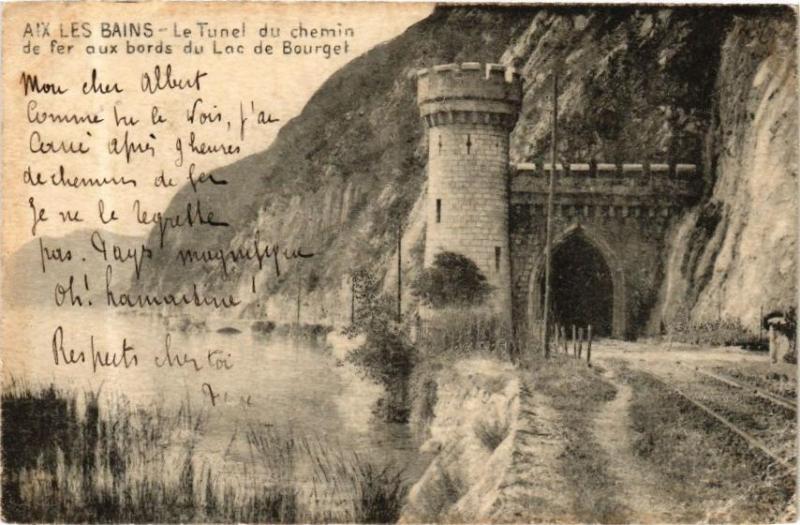 AIX LES BAINS - Le Tunel du chemin
de fer aux bords du Lac de Bourget
Mon cher Albert
Comme tu le vois, j'ai
après 9 heures
de chemins de fer
Je ne le regrette
pas. Pays magnifique
Oh! Lamartine!
Respects chez toi